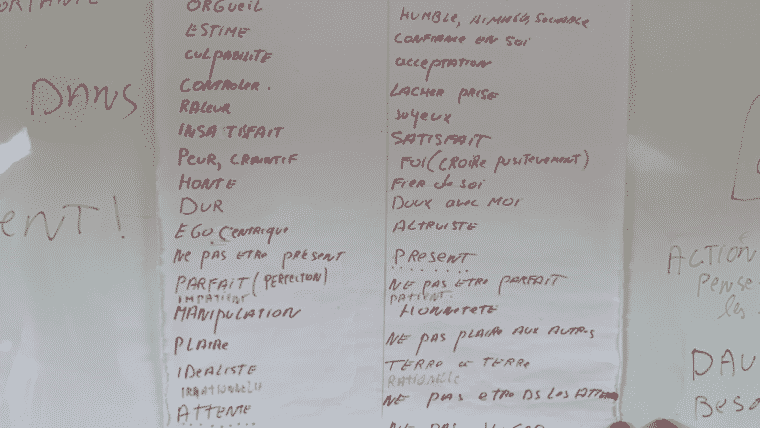 ORGUEIL
HUMBLE, AIMABLE, SOCIABLE
ESTIME
CONFIANCE EN SOI
CULPABILITE
acceptation
CONTROLER.
LACHER PRISE
RALEUR
JOYEUX
INSATISFAIT
SATISFAIT
PEUR, CRAINTIF
FOI (CROIRE POSITIVEMENT)
HONTE
FIER de SOI
DUR
DOUX avec MOI
EGOCENTRIQUE
ALTRUISTE
NE PAS ETRE PRÉSENT
PRESENT
PARFAIT (PERFECTION)
NE PAS ETRE PARFAIT
IMPATIENT
PATIENT
MANIPULATION
HONNETETE
PLAIRE
NE PAS PLAIRE AUX AUTRES
IDEALISTE
TERRE à TERRE
IRRATIONNELLE
RATIONABLE
ATTENTE
NE PAS ETRE DS LES ATTENTES
DANS
ENT!
ACTION
PENSE
les
DAV
BESO